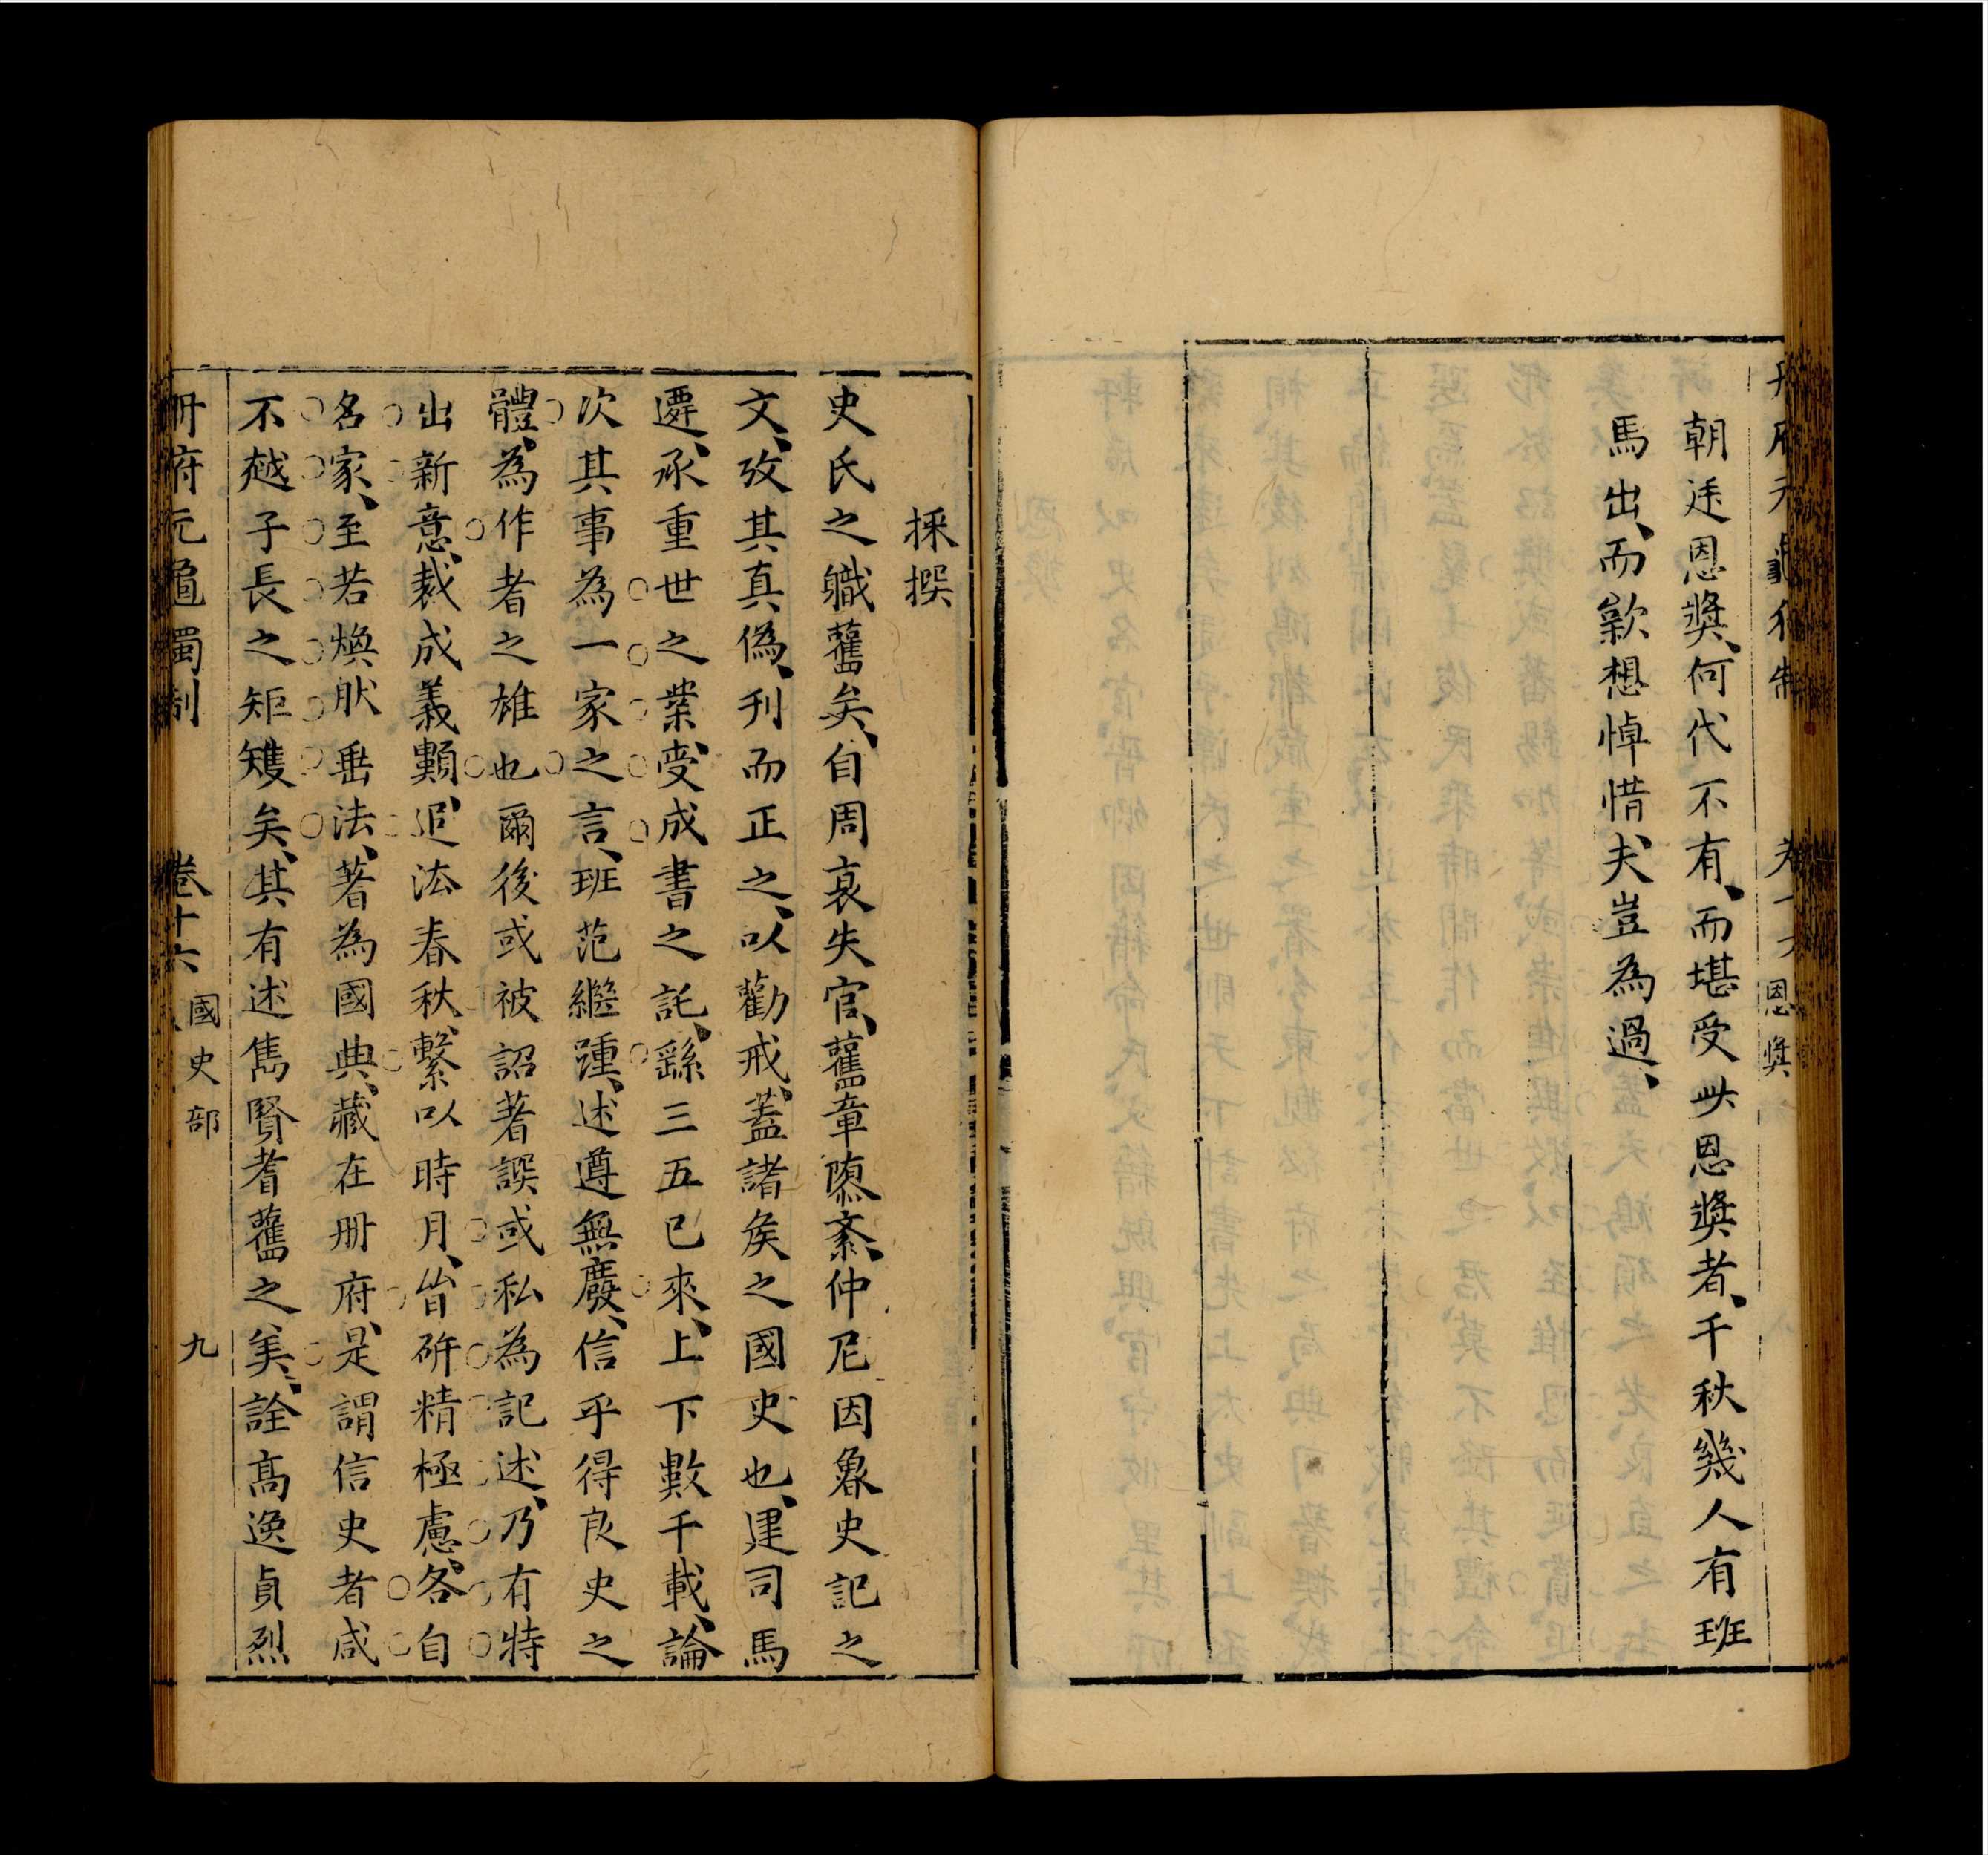 朝廷恩奬、何代不有、而堪受此恩奬者、千秋幾人有班
馬出、而歎想悼惜、夫豈為過、
恩奬
採撰
史氏之職舊矣、自周衰失官、舊章隳紊、仲尼因魯史記之
文、攷其真偽、刋而正之、以勸戒、蓋諸矦之國史也、建司馬
遷、承重世之業、受成書之託、繇三五已來、上下數千載、論
次其事為一家之言、班范繼踵、述遵無廢、信乎得良史之
體、為作者之雄也爾後或被詔著誤或私為記述、乃有特
出新意、裁成義類、追法春秋、繫以時月、皆研精極慮、各自
名家、至若煥肰垂法、著為國典、藏在册府、是謂信史者咸
不越子長之矩矱矣、其有述雋賢耆舊之美、詮高逸貞烈
册府元龜獨制
卷十六
國史部
九